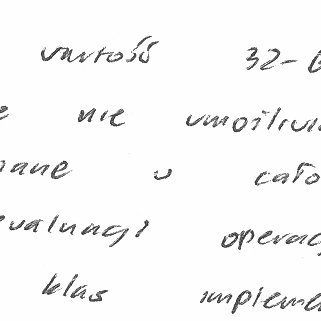 wartość 32-B
e nie umożliw
ane w cało
ewaluacji operac
klas impleme